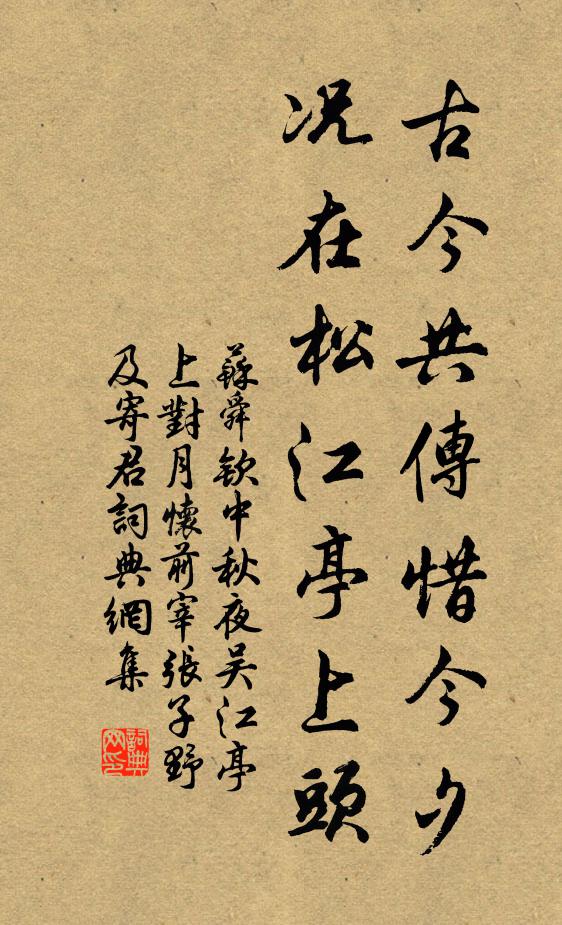 古今共傳惜今夕
況在松江亭上頭
蘇舜欽中秋夜吴江亭
上對月懷前宰張子野
及寄君詞典網集
詞典網印